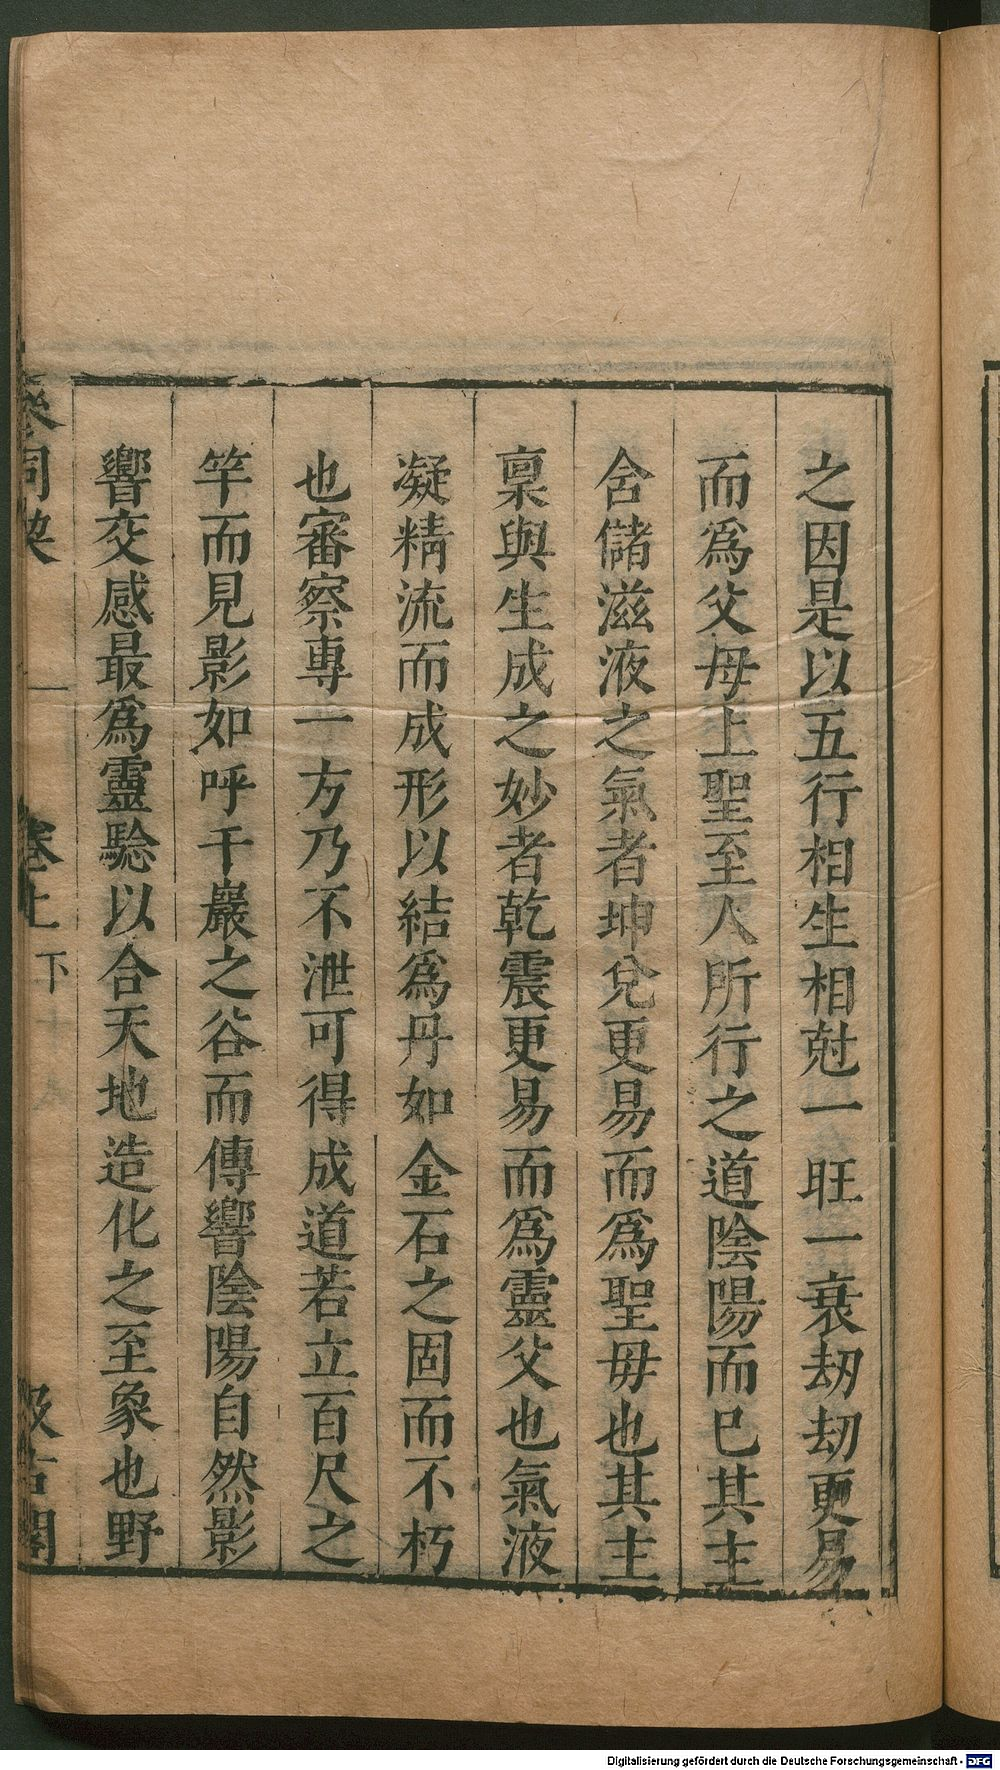 之因是以五行相生相尅一旺一衰刼刼更易
而爲父母上聖至人所行之道陰陽而已其主
含儲滋液之氣者坤兌更易而爲聖母也其主
稟與生成之妙者乾震更易而爲靈父也氣液
凝精流而成形以結爲丹如金石之固而不朽
也審察專一方乃不泄可得成道若立百尺之
竿而見影如呼千巖之谷而傳響陰陽自然影
響交感最爲靈驗以合天地造化之至象也野
參同契 卷上下 汲古閣
Digitalisierung gefördert durch die Deutsche Forschungsgemeinschaft - DFG